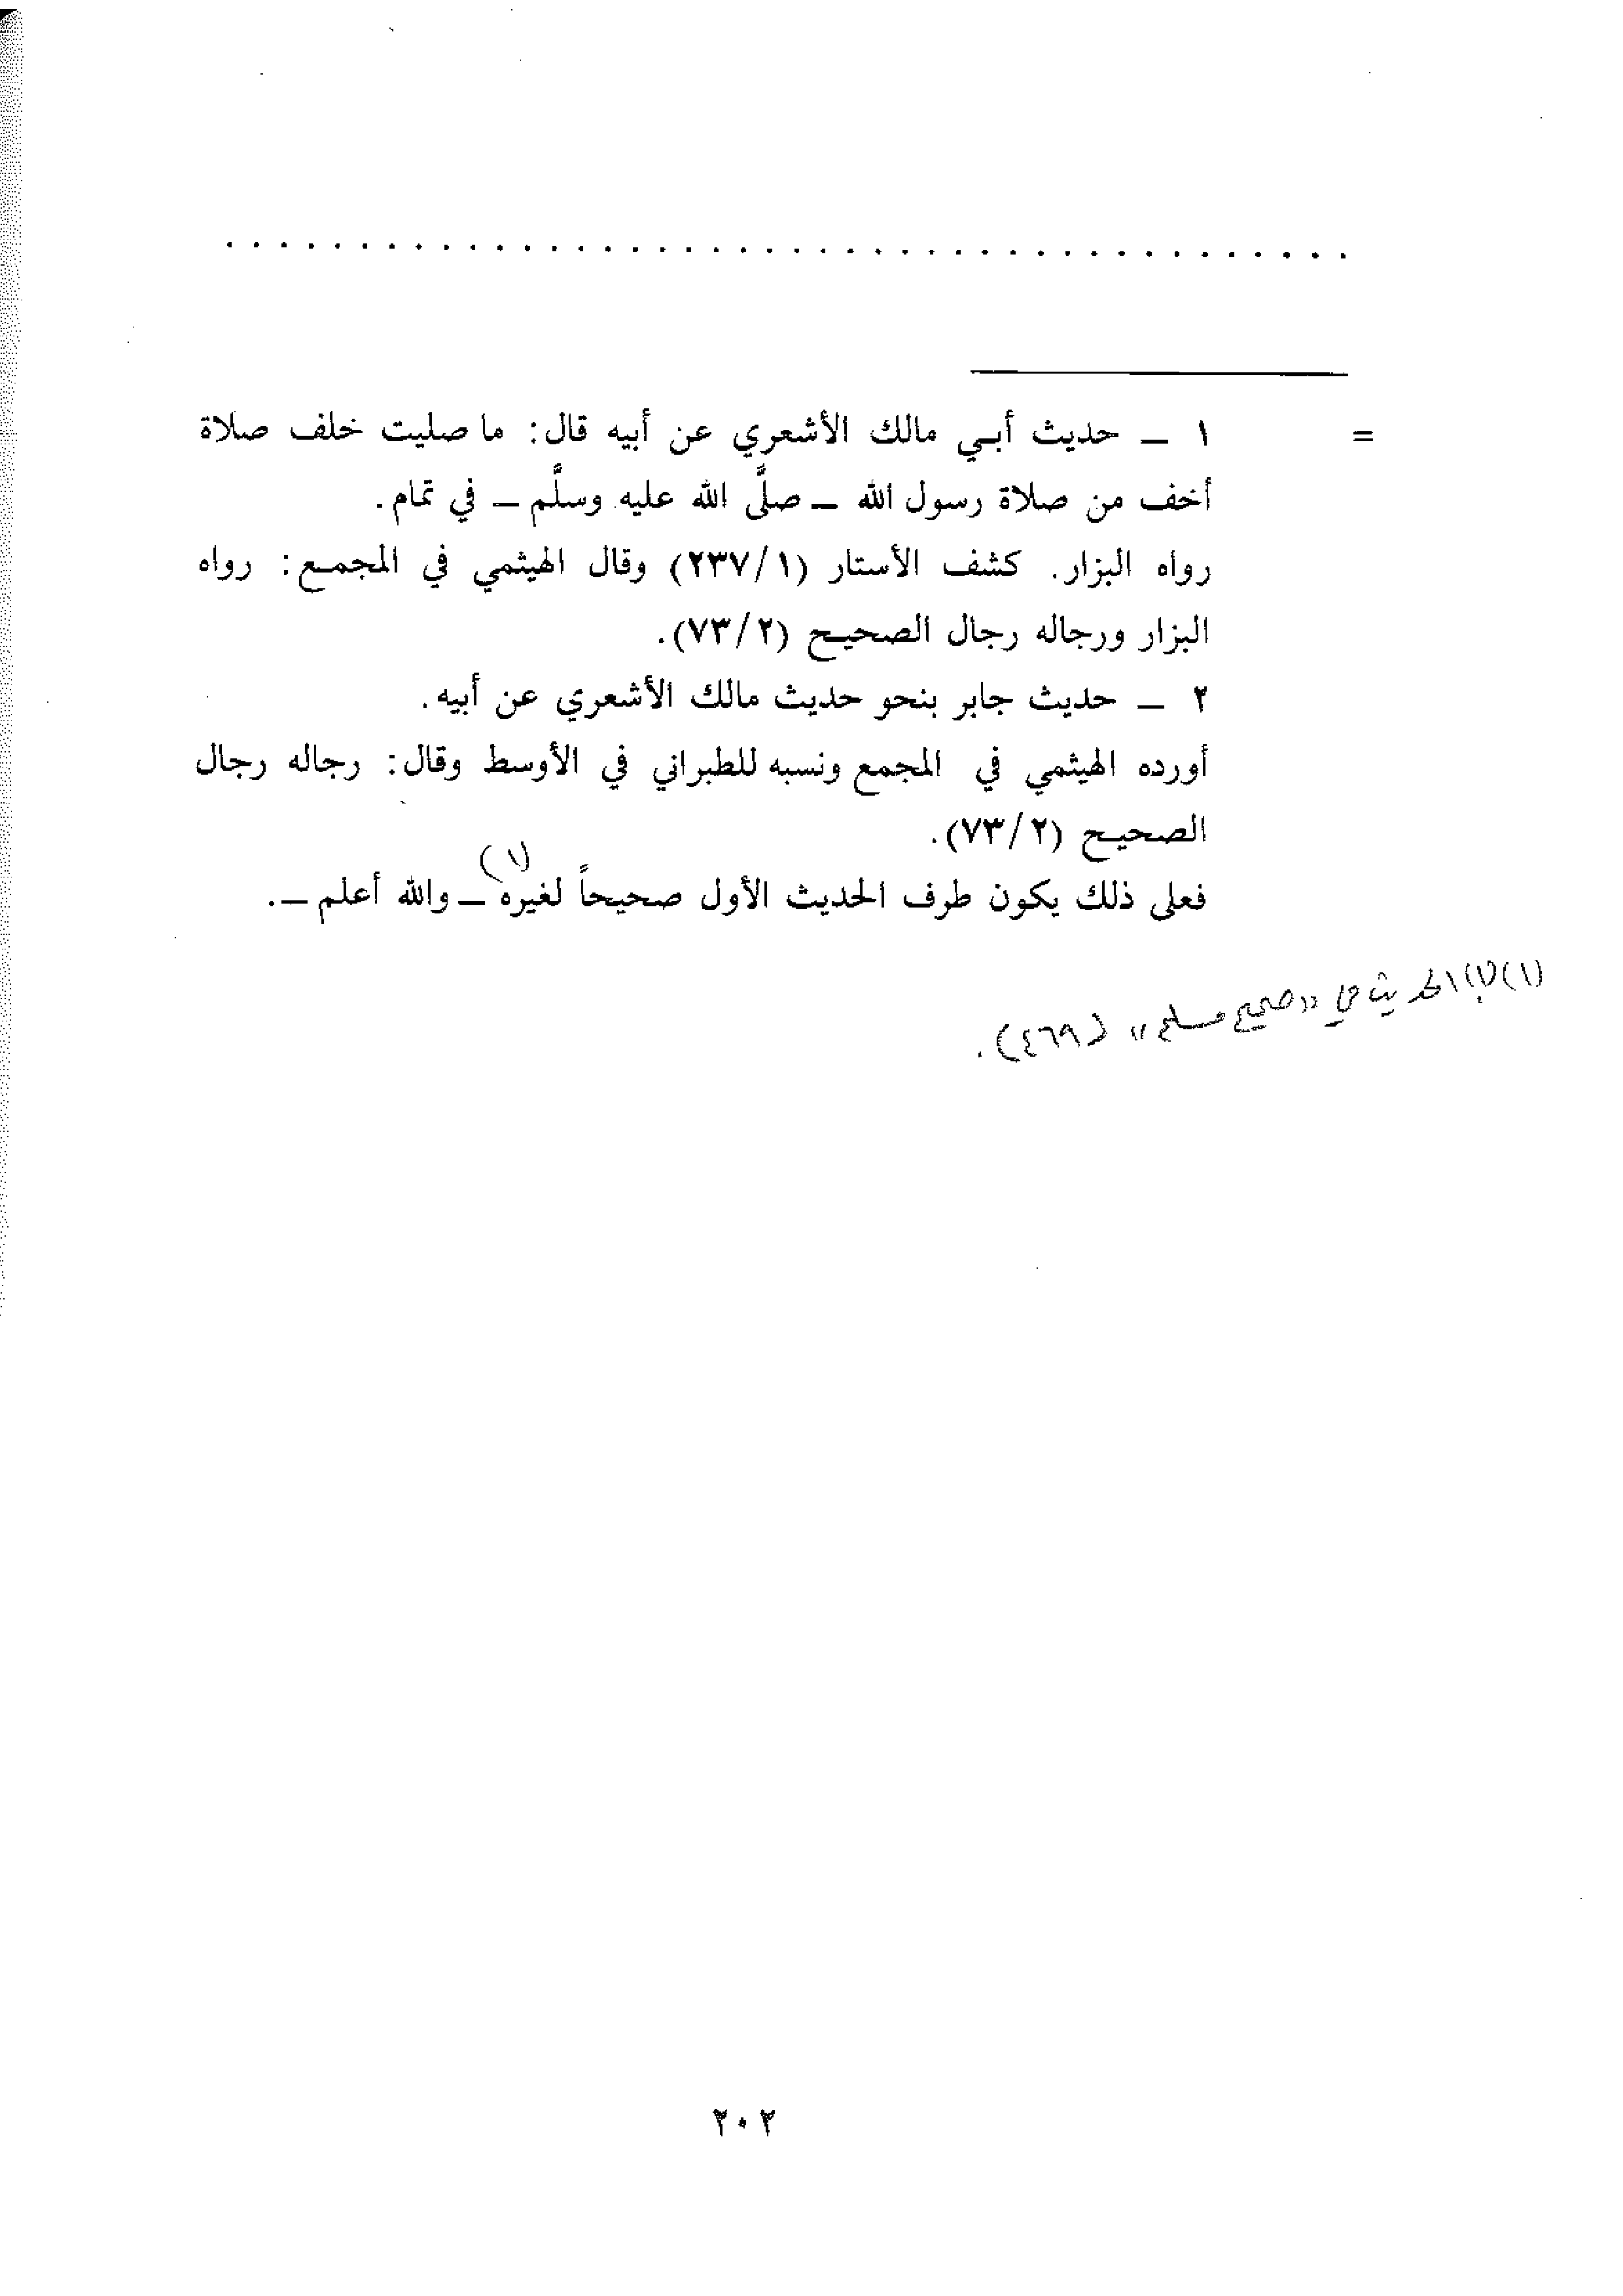 . . . . . . . . . . . . . . . . . . . . . . . . . . . . . . . . . . . . . . . . . .
= ١ ــ حديث أبـي مالك الأشعري عن أبيه قال: ما صليت خلف صلاة
أخف من صلاة رسول الله ــ صلَّى الله عليه وسلَّم ــ في تمام.
رواه البزار. كشف الأستار (٢٣٧/١) وقال الهيثمي في المجمـع: رواه
البزار ورجاله رجال الصحيـح (٧٣/٢).
٢ ــ حديث جابر بنحو حديث مالك الأشعري عن أبيه.
أورده الهيثمي في المجمع ونسبه للطبراني في الأوسط وقال: رجاله رجال
الصحيـح (٧٣/٢).
فعلى ذلك يكون طرف الحديث الأول صحيحاً لغيره (١) ــ والله أعلم ــ.
(١) الحديث في «صحيح مسلم» (٤٦٩).
٢٠٢